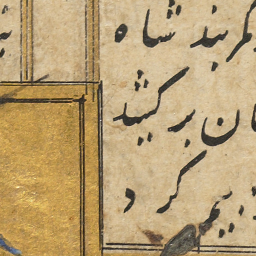 کمربند شاه
ان برکشید
بیم کرد